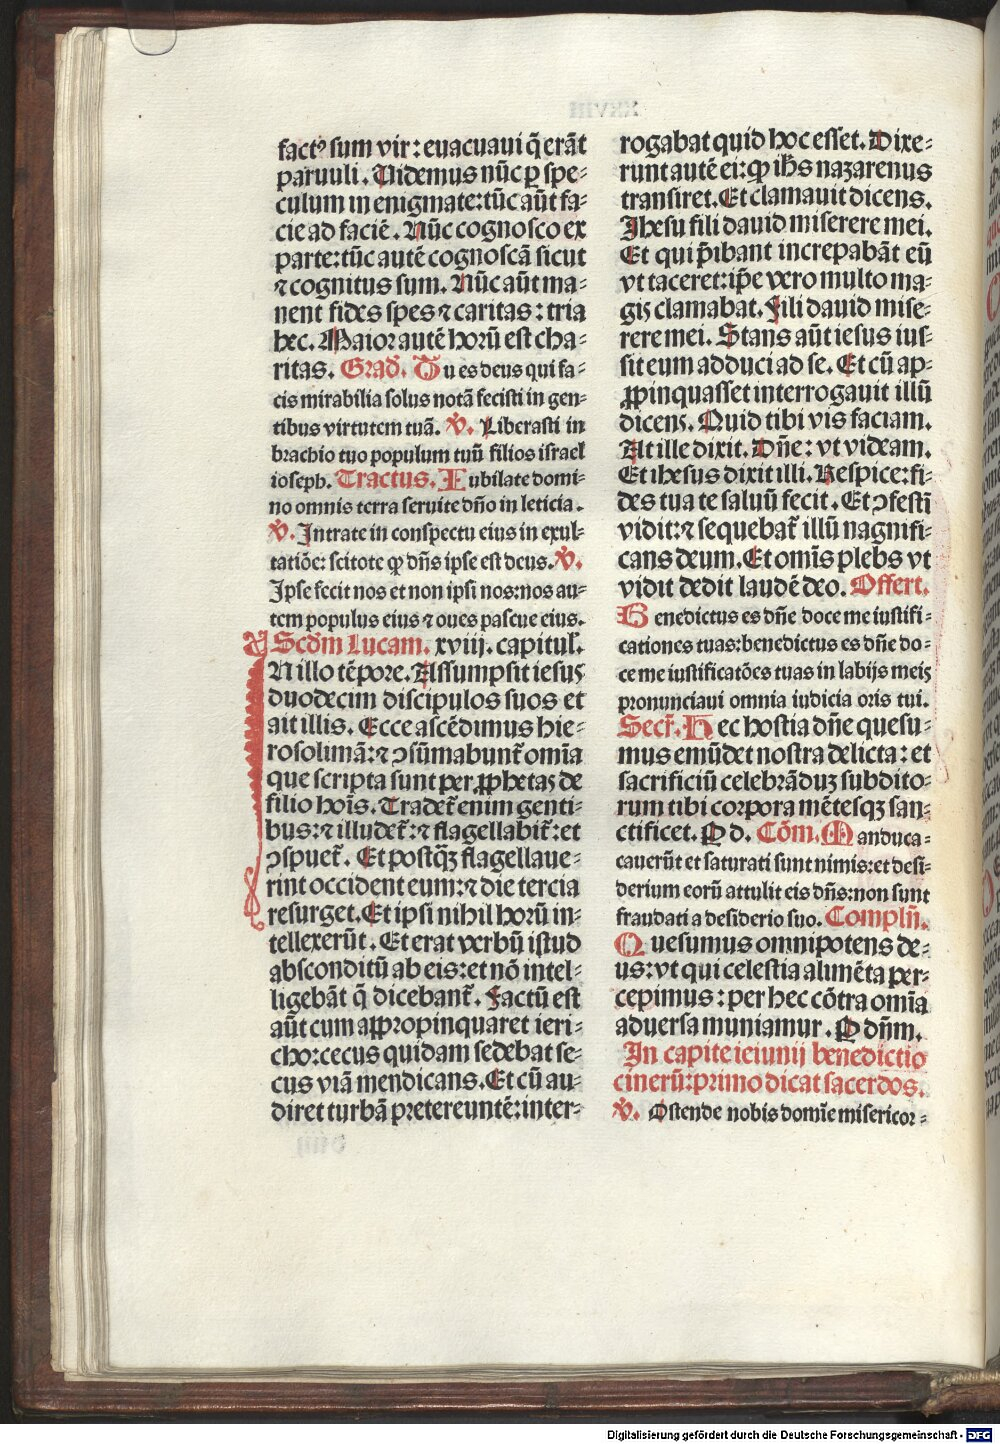 factꝰ sum vir: euacuaui q̄ erāt
paruuli. Videmus nūc ꝑ spe-
culum in enigmate: tūc aūt fa-
cie ad faciē. Nūc cognosco ex
parte: tūc autē cognoscā sicut
⁊ cognitus sum. Nūc aūt ma-
nent fides spes ⁊ caritas: tria
hec. Maior autē horū est cha-
ritas. Grad̕. Tu es deus qui fa-
cis mirabilia solus notā fecisti in gen-
tibus virtutem tuā. ℣. Liberasti in
brachio tuo populum tuū filios israel
ioseph. Tractus. Iubilate domi-
no omnis terra seruite dn̄o in leticia.
℣. Intrate in conspectu eius in exul-
tatiōe: scitote ꝙ dn̄s ipse est deus. ℣.
Ipse fecit nos et non ipsi nos: nos au-
tem populus eius ⁊ oues pascue eius.
Scd̄m Lucam. xviij. capitul̕.
IN illo tēpore. Assumpsit iesus
duodecim discipulos suos et
ait illis. Ecce ascēdimus hie-
rosolimā: ⁊ ꝯsūmabunt᷑ om̄ia
que scripta sunt per ꝓphetas de
filio hoīs. Tradet᷑ enim genti-
bus: ⁊ illudet᷑: ⁊ flagellabit᷑: et
ꝯspuet᷑. Et postq̄ꝫ flagellaue-
rint occident eum: ⁊ die tercia
resurget. Et ipsi nihil horū in-
tellexerūt. Et erat verbū istud
absconditū ab eis: et nō intel-
ligebāt q̄ dicebant᷑. Factū est
aūt cum appropinquaret ieri-
cho: cecus quidam sedebat se-
cus viā mendicans. Et cū au-
diret turbā pretereuntē: inter-
rogabat quid hoc esset. Dixe-
runt autē ei: ꝙ ih̄s nazarenus
transiret. Et clamauit dicens.
Jhesu fili dauid miserere mei.
Et qui p̄ibant increpabāt eū
vt taceret: ip̄e vero multo ma-
gis clamabat. Fili dauid mise-
rere mei. Stans aūt iesus ius-
sit eum adduci ad se. Et cū ap-
ꝓpinquasset interrogauit illū
dicens. Quid tibi vis faciam.
At ille dixit. Dn̄e: vt videam.
Et ihesus dixit illi. Respice: fi-
des tua te saluū fecit. Et ꝯfestī
vidit: ⁊ sequebat᷑ illū nagnifi-
cans deum. Et omīs plebs vt
vidit dedit laudē deo. Offert.
Benedictus es dn̄e doce me iustifi-
cationes tuas: benedictus es dn̄e do-
ce me iustificatōes tuas in labijs meis
pronunciaui omnia iudicia oris tui.
Secr̄. Hec hostia dn̄e quesu-
mus emūdet nostra delicta: et
sacrificiū celebrāduꝫ subdito-
rum tibi corpora mētesqꝫ san-
ctificet. P d. Cōm. Manduca-
cauerūt et saturati sunt nimis: et desi-
derium eorū attulit eis dn̄s: non sunt
fraudati a desiderio suo. Compln̄.
Quesumus omnipotens de-
us: vt qui celestia alimēta per-
cepimus: per hec cōtra om̄ia
aduersa muniamur. P dn̄m.
In capite ieiunij benedictio
cinerū: primo dicat sacerdos.
℣. Ostende nobis domīe misericor-
Digitalisierung gefördert durch die Deutsche Forschungsgemeinschaft - DFG